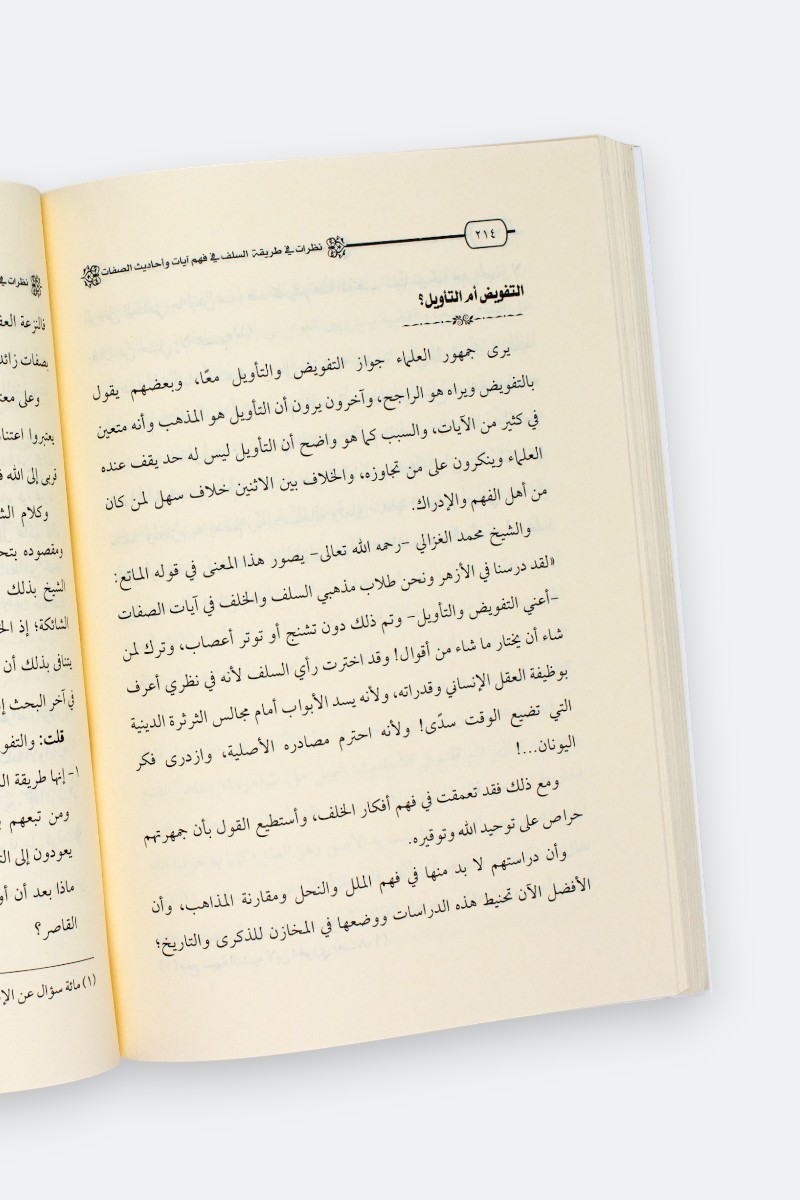 ٢١٤
نظرات في طريقة السلف في فهم آيات وأحاديث الصفات
التفويض أم التأويل؟
يرى جمهور العلماء جواز التفويض والتأويل معًا، وبعضهم يقول
بالتفويض ويراه هو الراجح، وآخرون يرون أن التأويل هو المذهب وأنه متعين
في كثير من الآيات، والسبب كما هو واضح أن التأويل ليس له حد يقف عنده
العلماء وينكرون على من تجاوزه، والخلاف بين الاثنين خلاف سهل لمن كان
من أهل الفهم والإدراك.
والشيخ محمد الغزالي -رحمه الله تعالى- يصور هذا المعنى في قوله الماتع:
«لقد درسنا في الأزهر ونحن طلاب مذهبي السلف والخلف في آيات الصفات
-أعني التفويض والتأويل- وتم ذلك دون تشنج أو توتر أعصاب، وترك لمن
شاء أن يختار ما شاء من أقوال! وقد اخترت رأي السلف لأنه في نظري أعرف
بوظيفة العقل الإنساني وقدراته، ولأنه يسد الأبواب أمام مجالس الثرثرة الدينية
التي تضيع الوقت سدًى! ولأنه احترم مصادره الأصلية، وازدرى فكر
اليونان...!
ومع ذلك فقد تعمقت في فهم أفكار الخلف، وأستطيع القول بأن جمهرتهم
حراص على توحيد الله وتوقيره.
وأن دراستهم لا بد منها في فهم الملل والنحل ومقارنة المذاهب، وأن
الأفضل الآن تحنيط هذه الدراسات ووضعها في المخازن للذكرى والتاريخ؛
نظرات في
فالنزعة
بصفات
وعلى
يعتبروا
قربى إلى الله
وكلام
ومقصوده
الشيخ بذلك
الشائكة؛ إذ
يتنافى بذلك أن
في آخر البحث
قلت:
١- إنها طريقة
ومن تبعهم
يعودون إلى
ماذا بعد أن
القاصر؟
(١) مائة سؤال عن